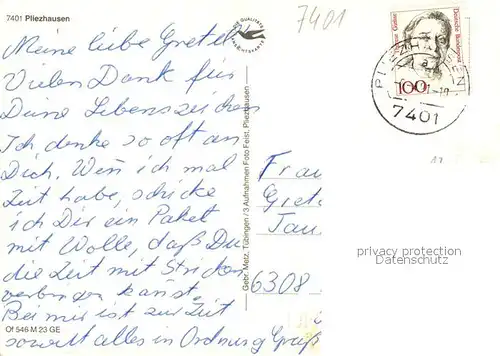 7401 Pliezhausen
Meine liebe Gretel!
Vielen Dank für
Deine Lebenszeichen
Ich denke so oft an
Dich. Wenn ich mal
Zeit habe, schicke
ich Dir ein Paket
mit Wolle, daß Du
die Zeit mit Stricken
verbringen kannst.
Bei mir ist zur Zeit
soweit alles in Ordnung Gruß
Of 546 M 23 GE
Gebr. Metz, Tübingen / 3 Aufnahmen Foto Feist, Pliezhausen
7401
Deutsche Bundespost
100
PLIEZHAUSEN
7401
Frau
Gretel
6308
privacy protection
Datenschutz